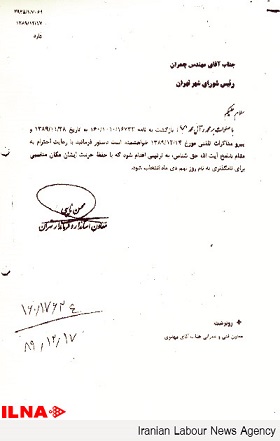 ۱۳۸۹/۱۲/۱۷
دارد
جناب آقای مهندس چمران
رئیس شورای شهر تهران
سلام علیکم
با صلوات بر محمد و آل محمد بازگشت به نامه ۱۶۰/۱۰۱۰/۱۶۷۳۳ به تاریخ ۱۳۸۹/۱۱/۲۸ و
پیرو مذاکرات تلفنی مورخ ۱۳۸۹/۱۲/۱۴ خواهشمند است دستور فرمائید با رعایت احترام به
مقام شامخ آیت الله حق شناس، به ترتیبی اقدام شود که با حفظ حرمت ایشان مکان مناسبی
برای نامگذاری به نام روز نهم دی ماه انتخاب شود.
معاون استاندار و فرماندار تهران
۱۶۰/۱۷۶۳۴
۸۹/۱۲/۱۷
رونوشت
معاون فنی و عمرانی جناب آقای
ILNA
Iranian Labour News Agency